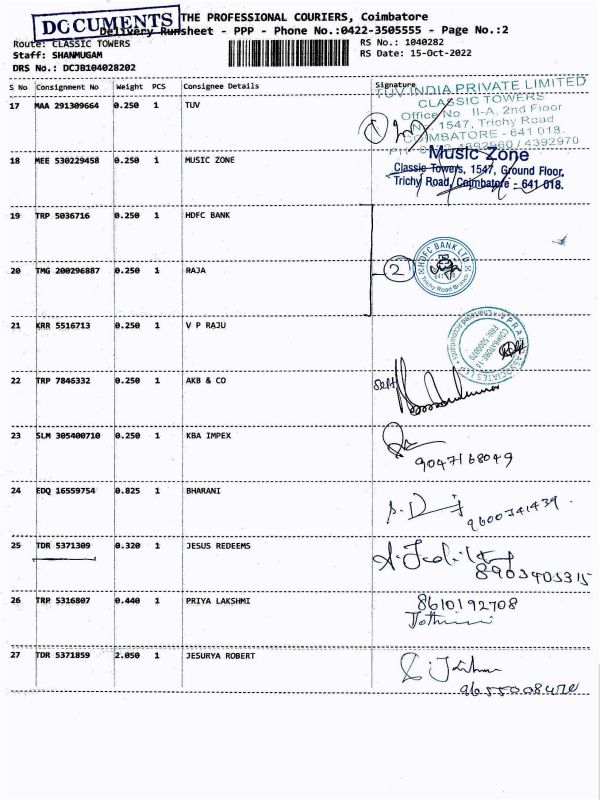 DOCUMENTS
THE PROFESSIONAL COURIERS, Coimbatore
Delivery Runsheet - PPP - Phone No.:0422-3505555 - Page No.:2
Route: CLASSIC TOWERS
RS No.: 1040282
Staff: SHANMUGAM
RS Date: 15-Oct-2022
DRS No.: DCJB104028202
S No Consignment No Weight PCS Consignee Details Signature
17 MAA 291309664 0.250 1 TUV
TUV INDIA PRIVATE LIMITED
CLASSIC TOWERS
Office No II-A, 2nd Floor
1547, Trichy Road
COIMBATORE - 641 018.
/ 4392970
1
18 MEE 530229458 0.250 1 MUSIC ZONE
Music Zone
Classic Towers, 1547, Ground Floor,
Trichy Road, Coimbatore - 641 018.
19 TRP 5036716 0.250 1 HDFC BANK
HDFC BANK LTD
Trichy Road Branch
2
20 TMG 200296887 0.250 1 RAJA
21 KRR 5516713 0.250 1 V P RAJU
22 TRP 7846332 0.250 1 AKB & CO
Self
23 SLM 305400710 0.250 1 KBA IMPEX
9047168049
24 EDQ 16559754 0.825 1 BHARANI
9600341439.
25 TDR 5371309 0.320 1 JESUS REDEEMS
8903403315
26 TRP 5316807 0.440 1 PRIYA LAKSHMI
8610192708
27 TDR 5371859 2.050 1 JESURYA ROBERT
9655008470